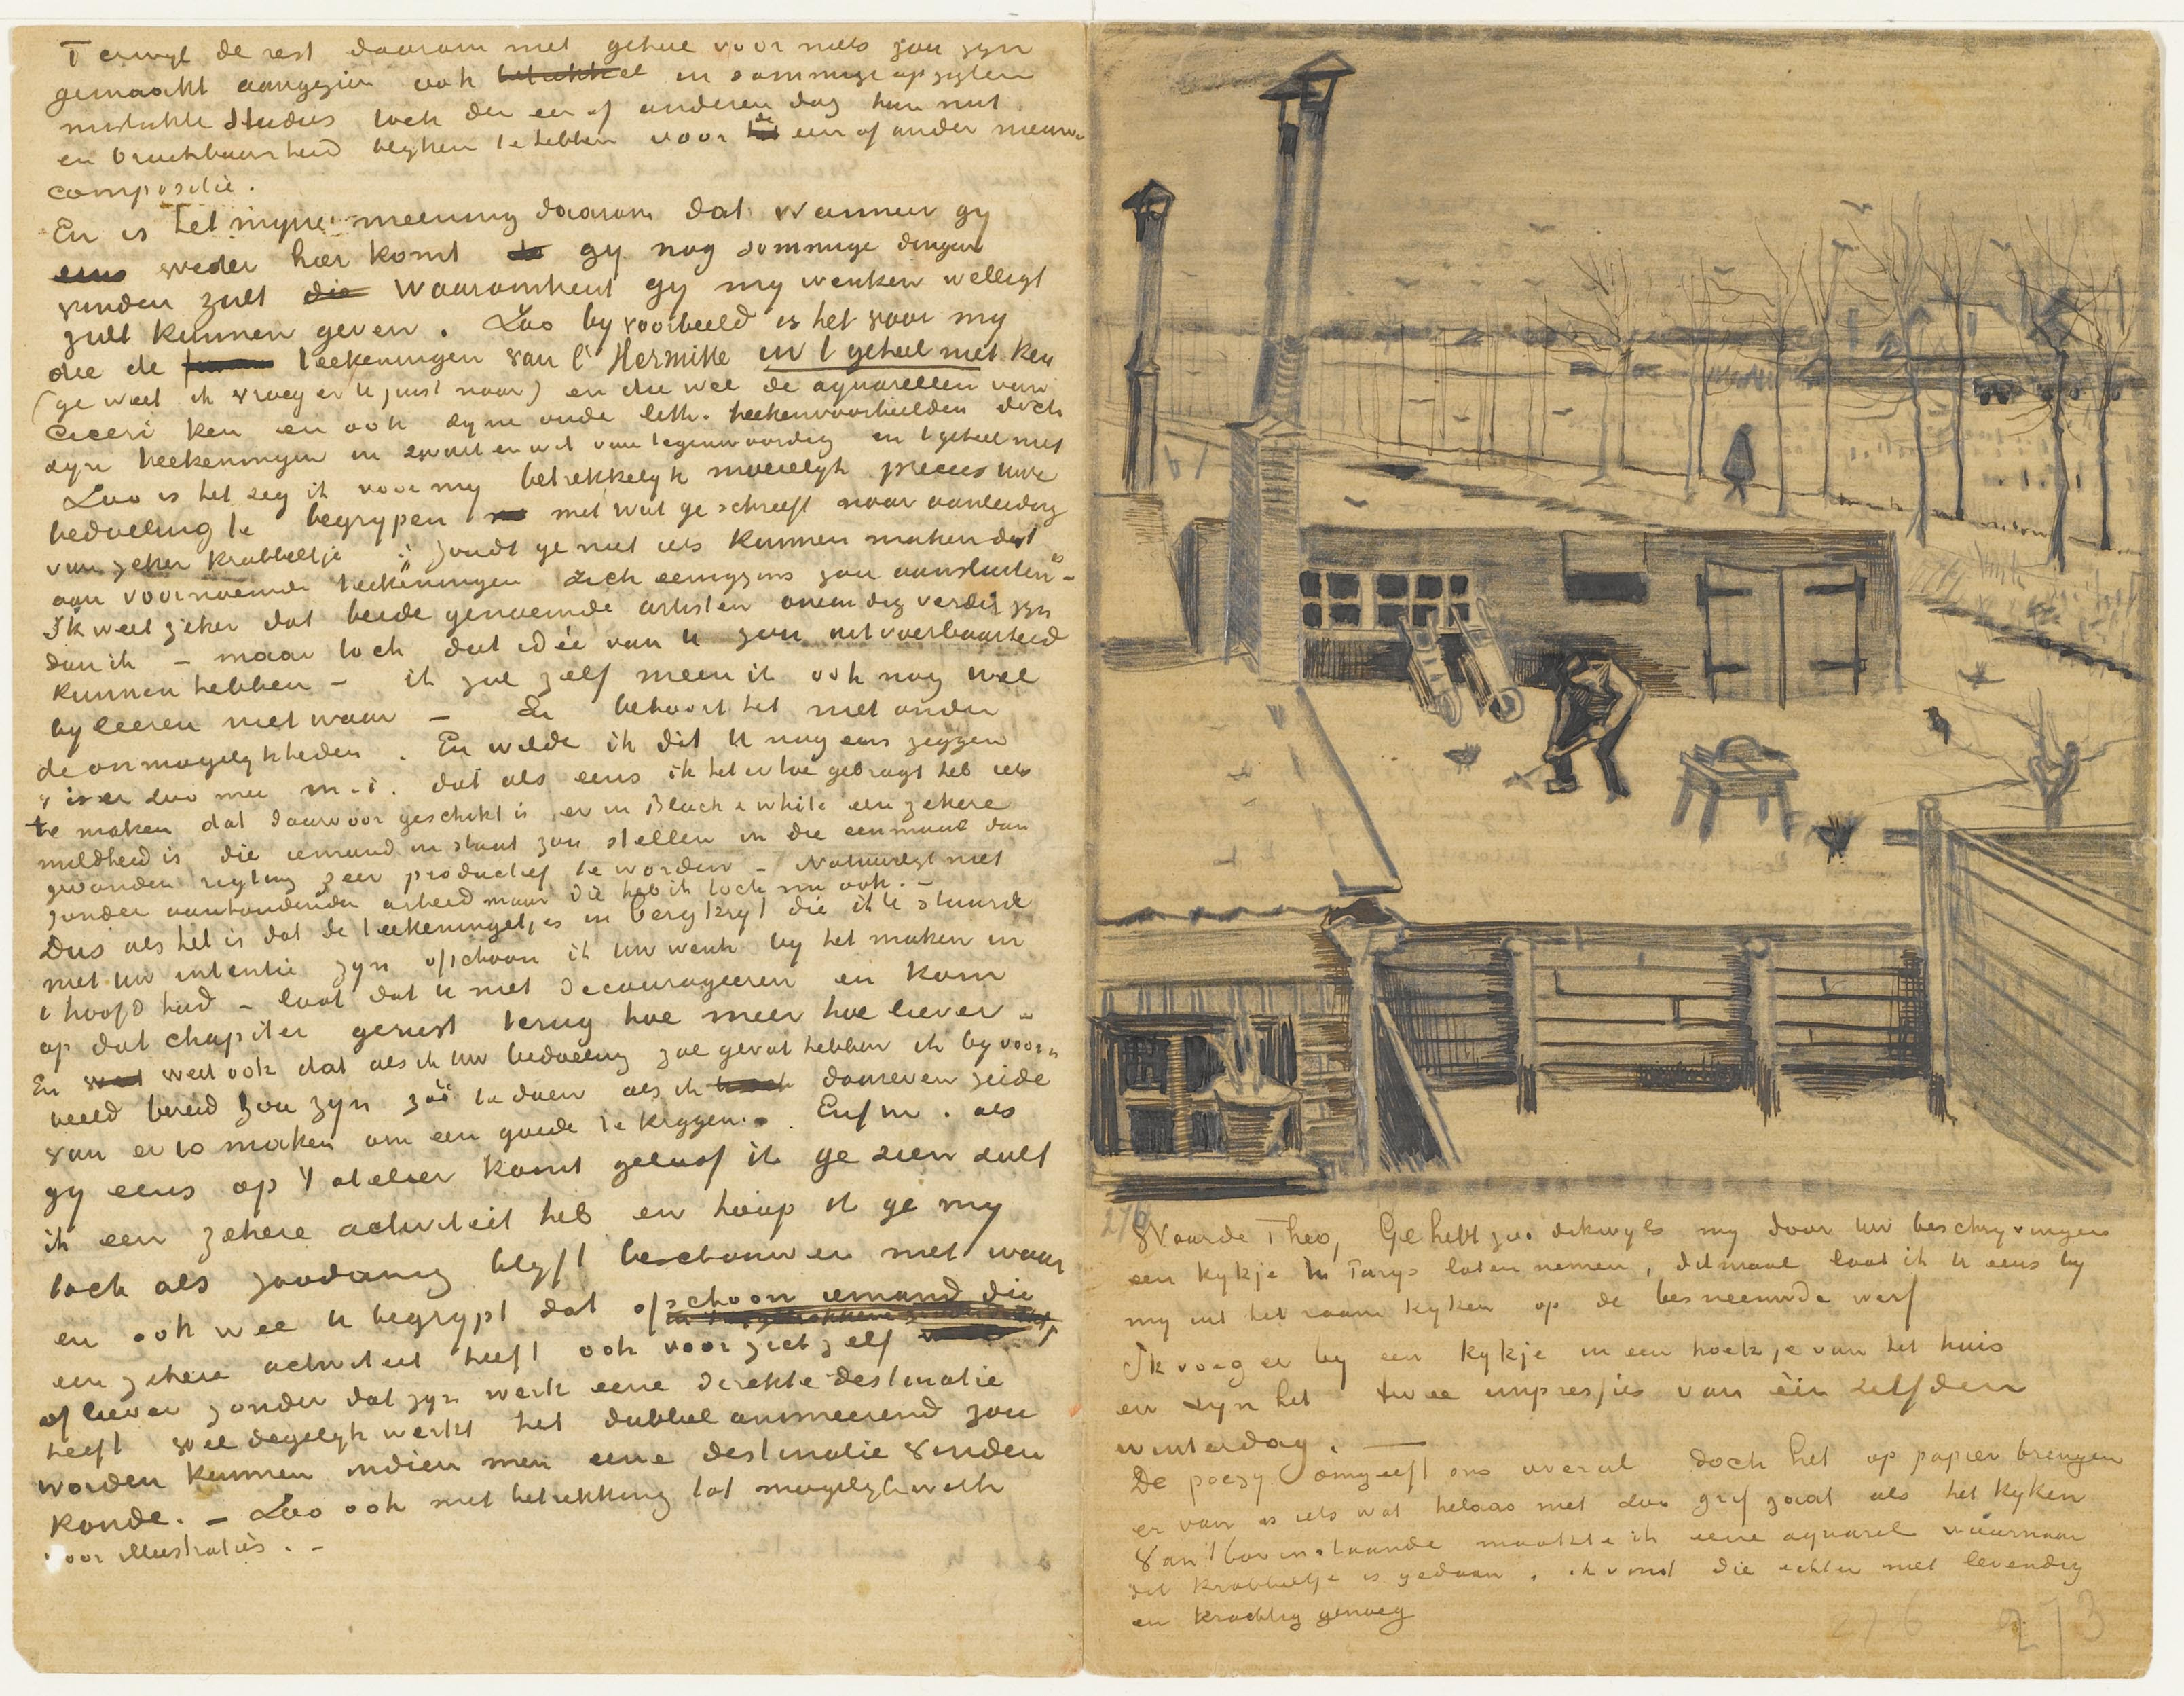 Terwyl de rest daarom niet geheel voor niets zou zyn
gemaakt aangezien ook in sommige opzigten
mislukte studies toch den een of anderen dag hun nut
en bruikbaarheid blyken te hebben voor de een of ander nieuwe
compositie.
En is het myne meening daarom dat wanneer gy
eens weder hier komt gy nog sommige dingen
vinden zult die waaromtrent gy my wenken welligt
zult kunnen geven. Zoo byvoorbeeld is het voor my
die de teekeningen van l'Hermitte in 't geheel niet ken
(ge weet ik vroeg er U juist naar) en die wel de aquarellen van
Ciceri ken en ook zyne oude lith. teekenvoorbeelden doch
zyn teekeningen in zwart en wit van tegenwoordig in 't geheel niet
Zoo is het zeg ik voor my betrekkelyk moeielyk precies uwe
bedoeling te begrypen met wat ge schreeft naar aanleiding
van zeker krabbeltje : „zoudt ge niet iets kunnen maken dat
aan voornoemde teekeningen zich eenigzins zou aansluiten" –
Ik weet zeker dat beide genoemde artisten oneindig verder zyn
dan ik – maar toch dat idée van U zou uitvoerbaarheid
kunnen hebben – ik zal zelf meen ik ook nog wel
byleeren niet waar – En behoort het niet onder
de onmogelykheden. En wilde ik dit U nog eens zeggen
is er zoo mee m.i. dat als eens ik het er toe gebragt heb iets
te maken dat daarvoor geschikt is er in Black & white een zekere
mildheid is die iemand in staat zou stellen in die eenmaal dan
gevonden rigting zeer productief te worden – Natuurlyk niet
zonder aanhoudenden arbeid maar die heb ik toch nu ook. –
Dus als het is dat de teekeningetjes in bergkryt die ik U stuurde
niet uw intentie zyn ofschoon ik uw wenk by het maken in
't hoofd had – laat dat U niet decourageeren en kom
op dat chapiter gerust terug hoe meer hoe liever –
En weet ook dat als ik uw bedoeling zal gevat hebben ik by voor-
beeld bereid zou zyn zóó te doen als ik daareven zeide
van er 10 maken om een goede te krygen. Enfin. als
gy eens op 't atelier komt geloof ik ge zien zult
ik een zekere activiteit heb en hoop ik ge my
toch als zoodanig blyft beschouwen niet waar
en ook wel U begrypt dat ofschoon iemand die
een zekere activiteit heeft ook voor zich zelf
of liever zonder dat zyn werk eene direkte destinatie
heeft wel degelyk werkt het dubbel animeerend zou
worden kunnen indien men eene destinatie vinden
konde. – Zoo ook met betrekking tot mogelyk werk
voor illustratie. –
276
Waarde Theo, Ge hebt zoo dikwyls my door uw beschryvingen
een kykje in Parys laten nemen, ditmaal laat ik U eens by
my uit het raam kyken op de besneeuwde werf
Ik voeg er by een kykje in een hoekje van het huis
en zyn het twee impressies van één zelfden
winterdag. —
De poezy omgeeft ons overal doch het op papier brengen
er van is iets wat helaas niet zoo grif gaat als het kyken
Van 't bovenstaande maakte ik eene aquarel waarnaar
dit krabbeltje is gedaan. ik vond die echter niet levendig
en krachtig genoeg
276 273